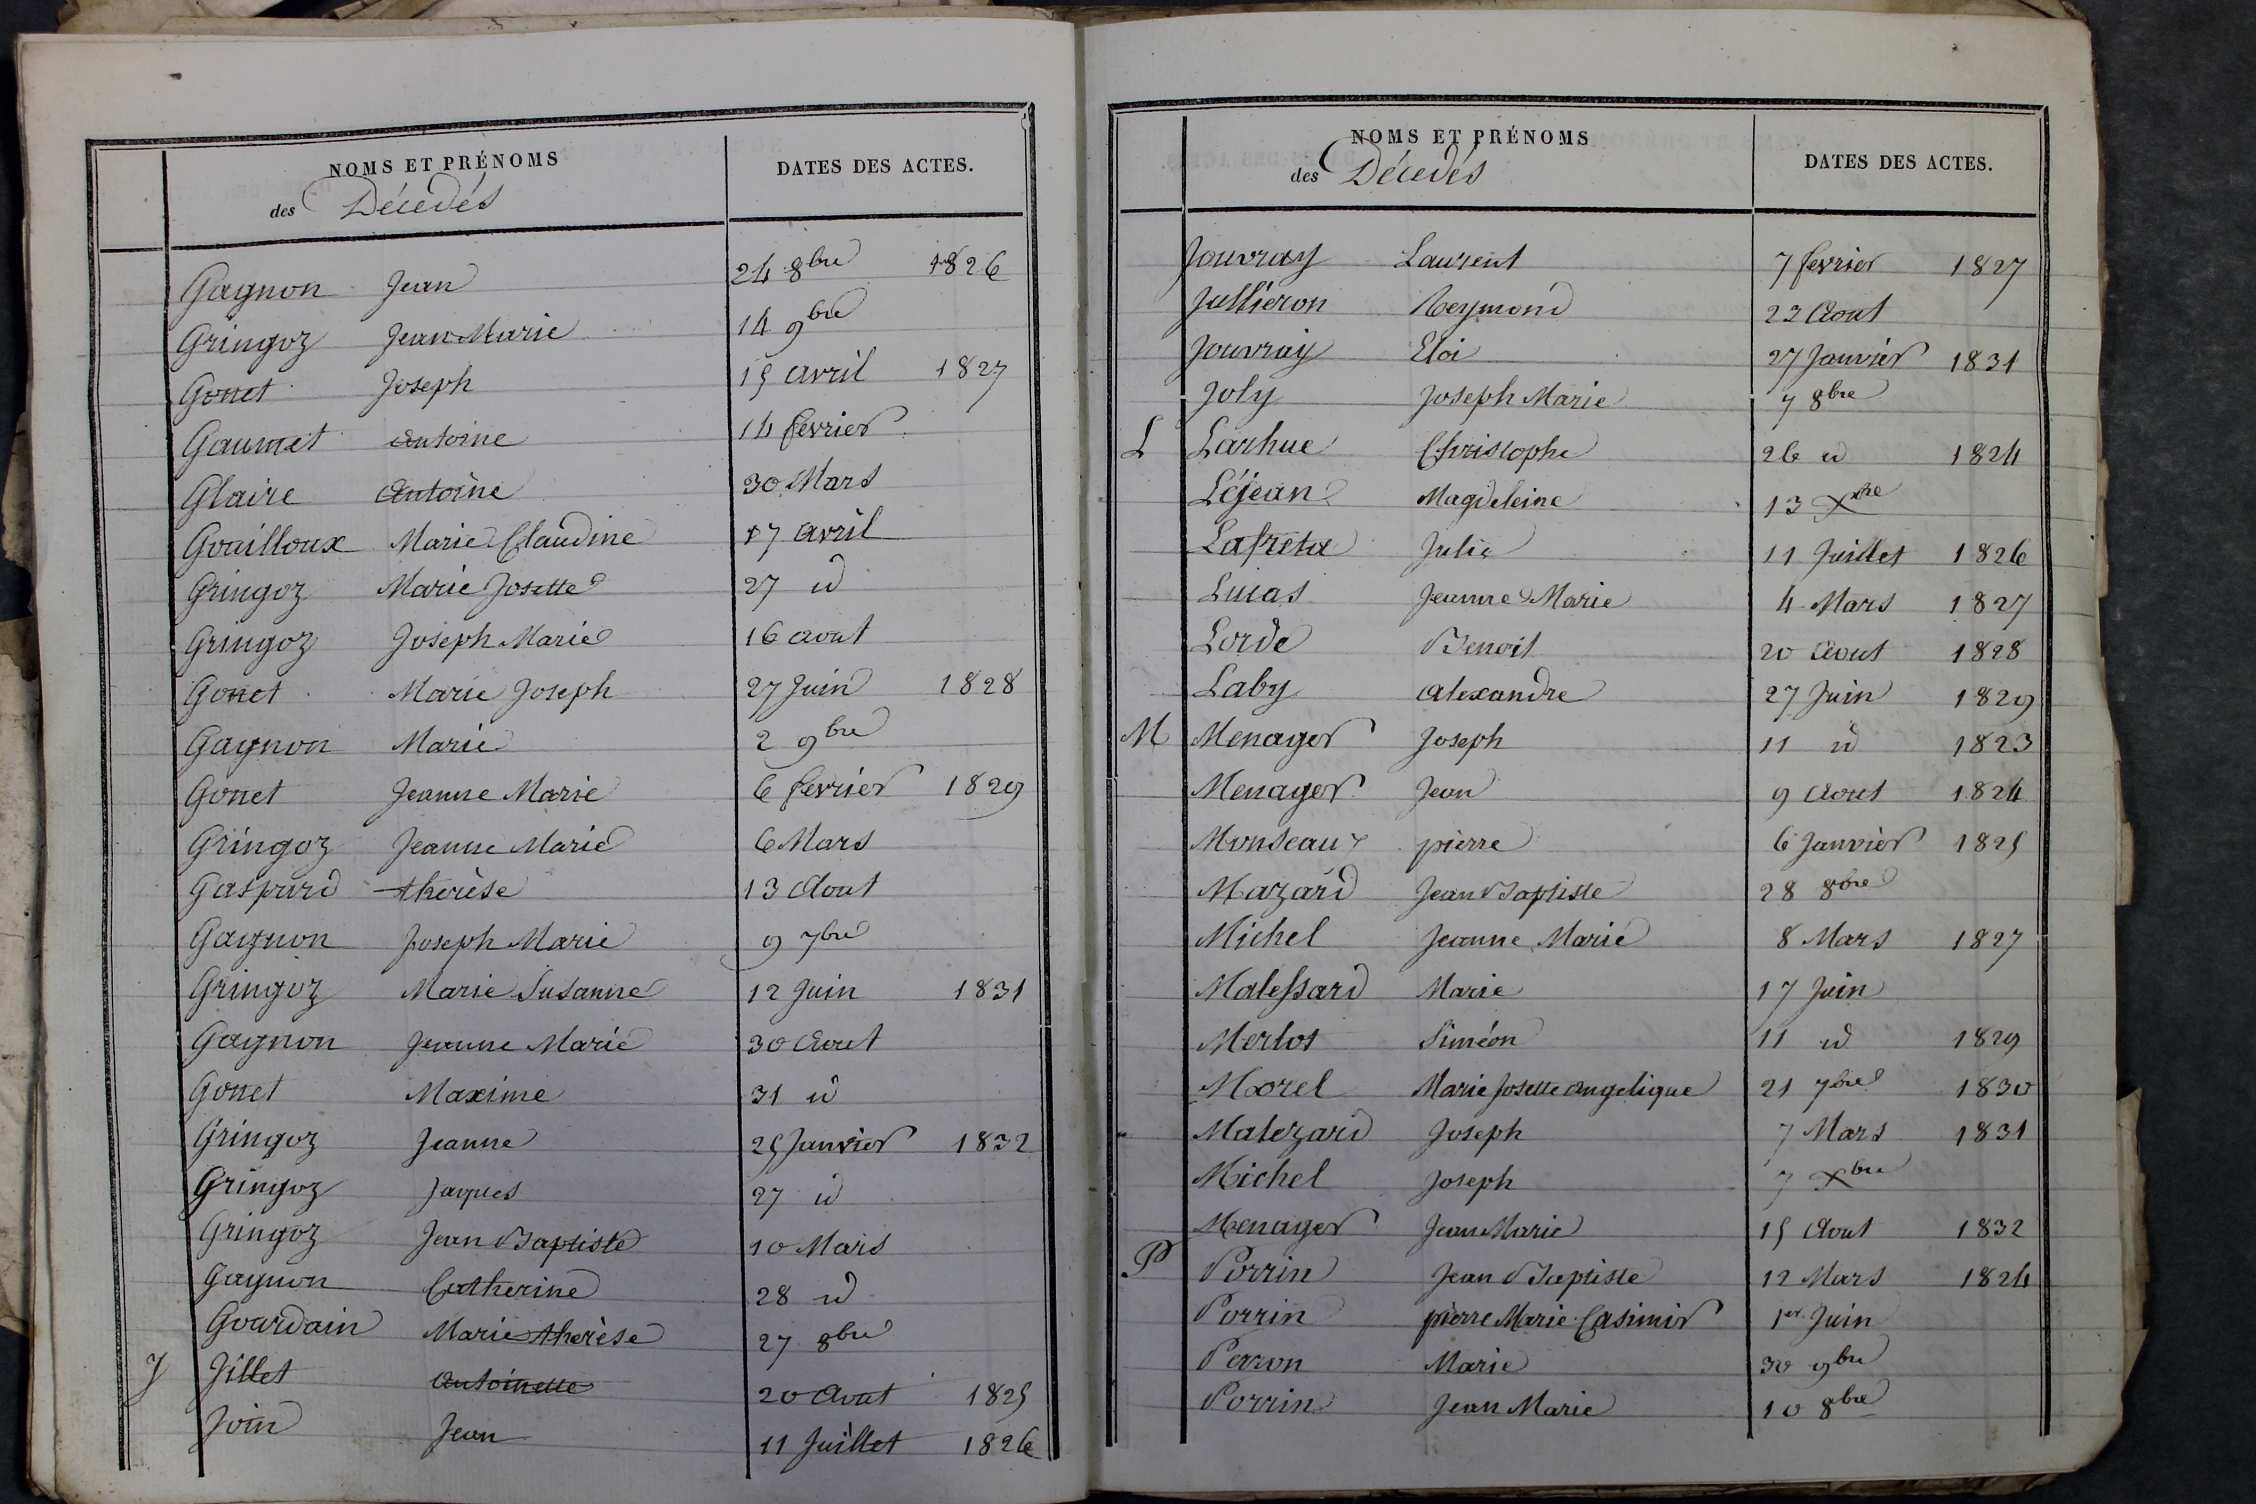 NOMS ET PRÉNOMS
des Décédés
DATES DES ACTES.
Gagnon Jean 24 8bre 1826
Gringoz Jean Marie 14 9bre
Gonet Joseph 15 avril 1827
Gaumet Antoine 14 fevrier
Glaire Antoine 30 Mars
Gouilloux Marie Claudine 17 avril
Gringoz Marie Josette 27 id
Gringoz Joseph Marie 16 aout
Gonet Marie Joseph 27 Juin 1828
Gagnon Marie 2 9bre
Gonet Jeanne Marie 6 fevrier 1829
Gringoz Jeanne Marie 6 Mars
Gaspard therèse 13 Aout
Gagnon Joseph Marie 9 7bre
Gringoz Marie Susanne 12 Juin 1831
Gagnon Jeanne Marie 30 Aout
Gonet Maxime 31 id
Gringoz Jeanne 25 Janvier 1832
Gringoz Jaques 27 id
Gringoz Jean Baptiste 10 Mars
Gagnon Catherine 28 id
Gourdain Marie therèse 27 8bre
J Jillet Antoinette 20 Aout 1825
Join Jean 11 Juillet 1826
NOMS ET PRÉNOMS
des Décédés
DATES DES ACTES.
Jouvray Laurent 7 fevrier 1827
Jullieron Reymond 23 Aout
Jouvray Eloi 27 Janvier 1831
Joly Joseph Marie 7 8bre
L Larhue Christophe 26 id 1824
Léjean Magdeleine 13 Xbre
Lafreta Julie 11 Juillet 1826
Lucas Jeanne Marie 4 Mars 1827
Lorde Benoit 20 Aout 1828
Laby Alexandre 27 Juin 1829
M Menager Joseph 11 id 1823
Menager Jean 9 Aout 1824
Monseaux pierre 6 Janvier 1825
Mazard Jean Baptiste 28 8bre
Michel Jeanne Marie 8 Mars 1827
Malessard Marie 17 Juin
Merlot Siméon 11 id 1829
Morel Marie Josette Angelique 21 7bre 1830
Malezard Joseph 7 Mars 1831
Michel Joseph 7 Xbre
Menager Jean Marie 15 Aout 1832
P Perrin Jean Baptiste 12 Mars 1824
Perrin pierre Marie Casimir 1er Juin
Perron Marie 30 9bre
Perrin Jean Marie 10 8bre